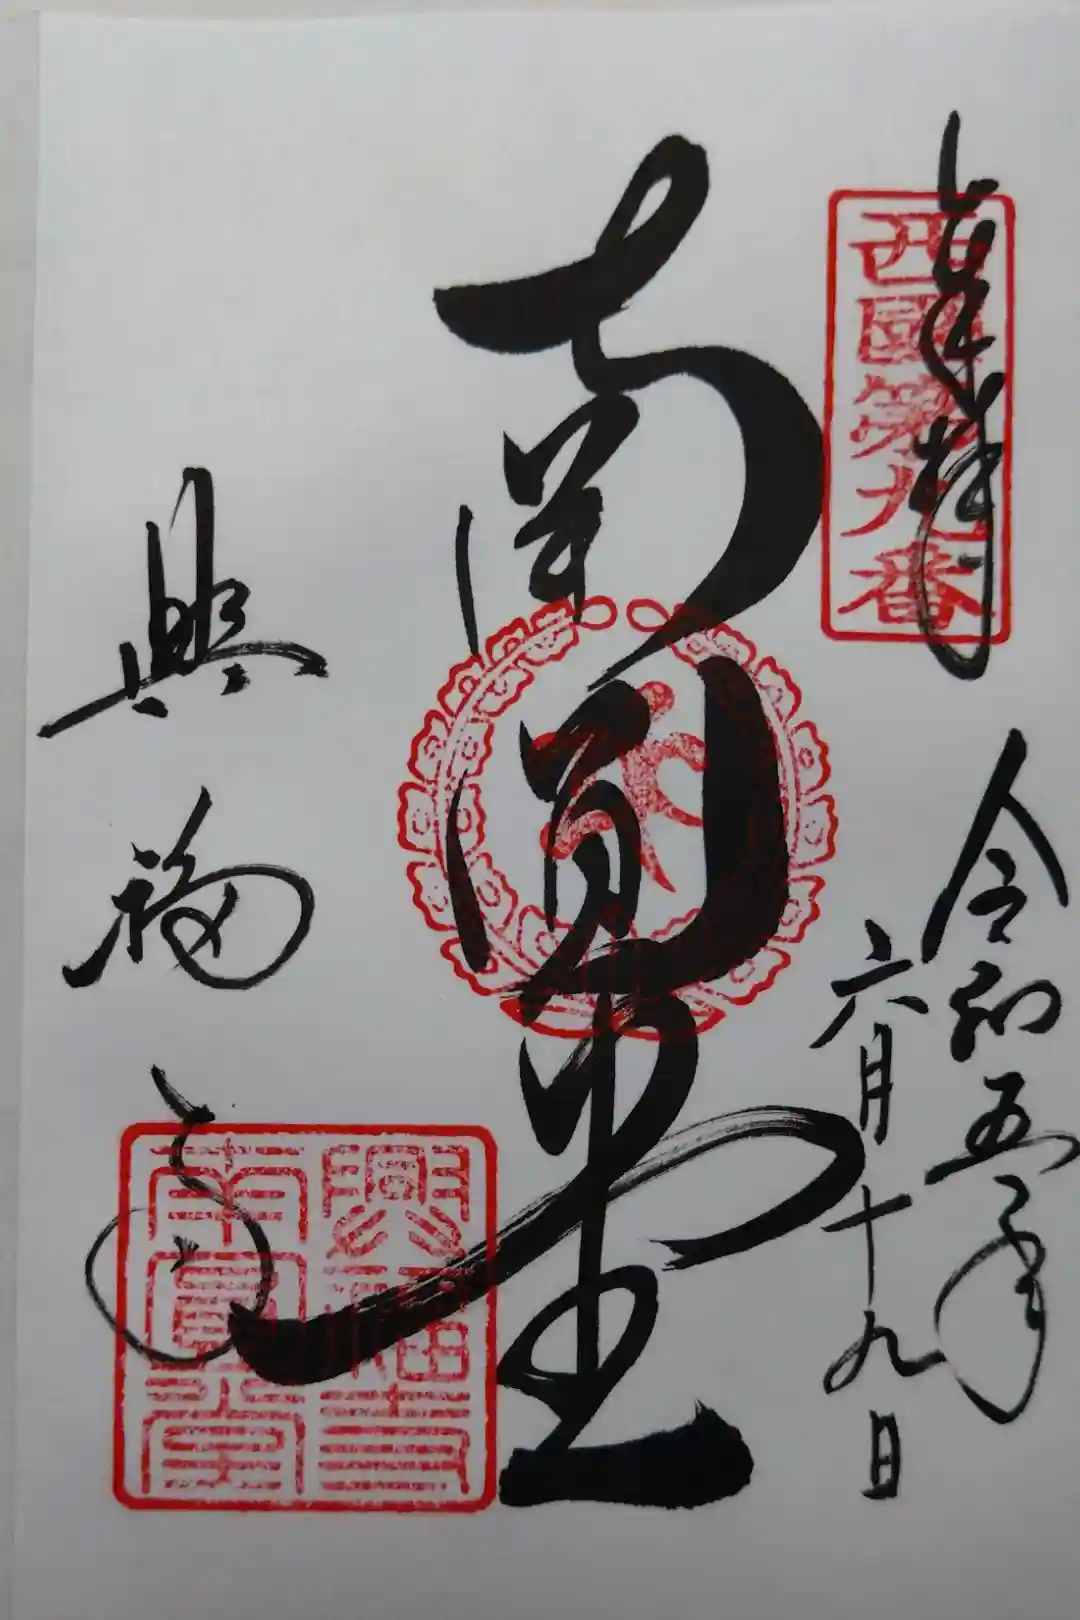 奉拝
西國第九番
令和五年
六月十九日
南圓堂
興福寺
興福寺
南圓堂